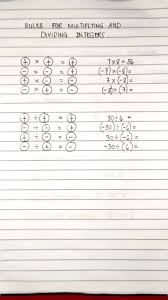 RULES FOR MULTIPLYING AND
DIVIDING INTEGERS
+ × + = + 7 × 8 = 56
- × - = + (-7) × (-8) =
+ × - = - 7 × (-8) =
- × + = - (-8) (7) =
+ ÷ + = + 30 ÷ 6 =
- ÷ - = + (-30) ÷ (-6) =
+ ÷ - = - 30 ÷ (-6) =
- ÷ + = - -30 ÷ (6) =